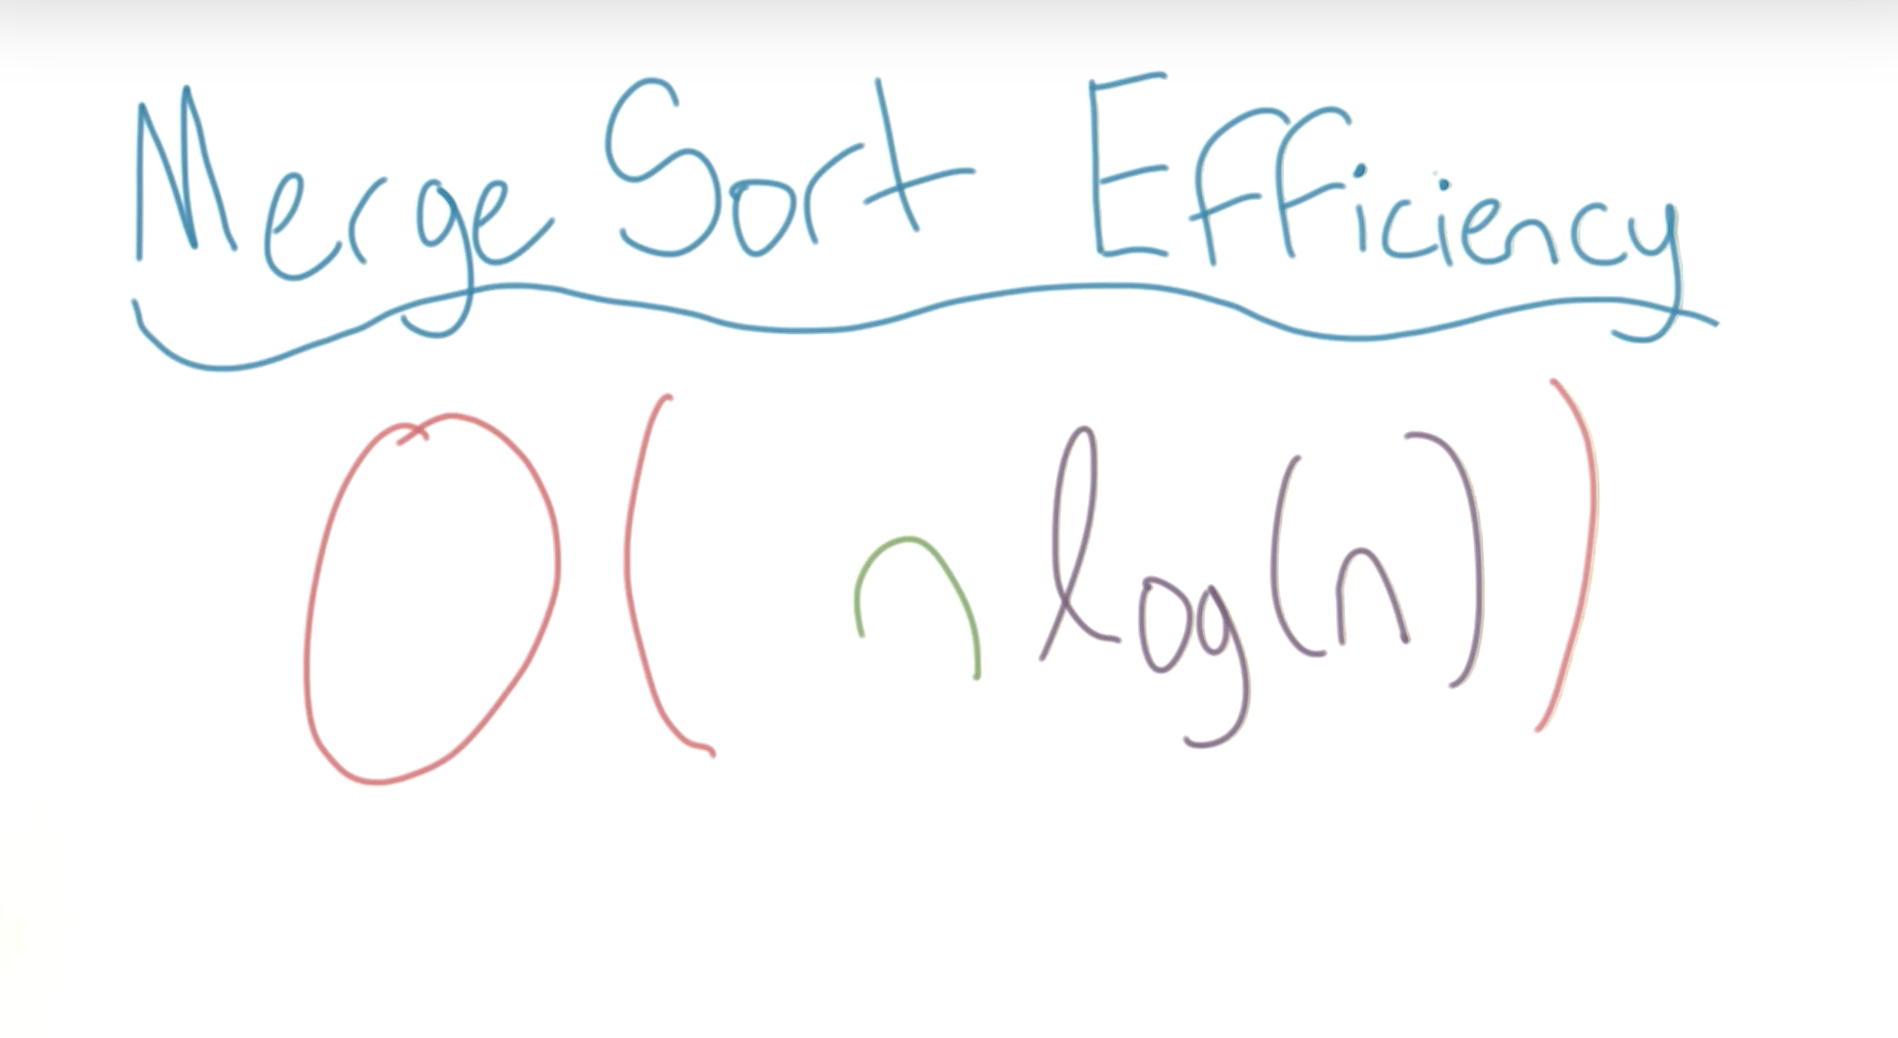 Merge Sort Efficiency
O( n log(n))